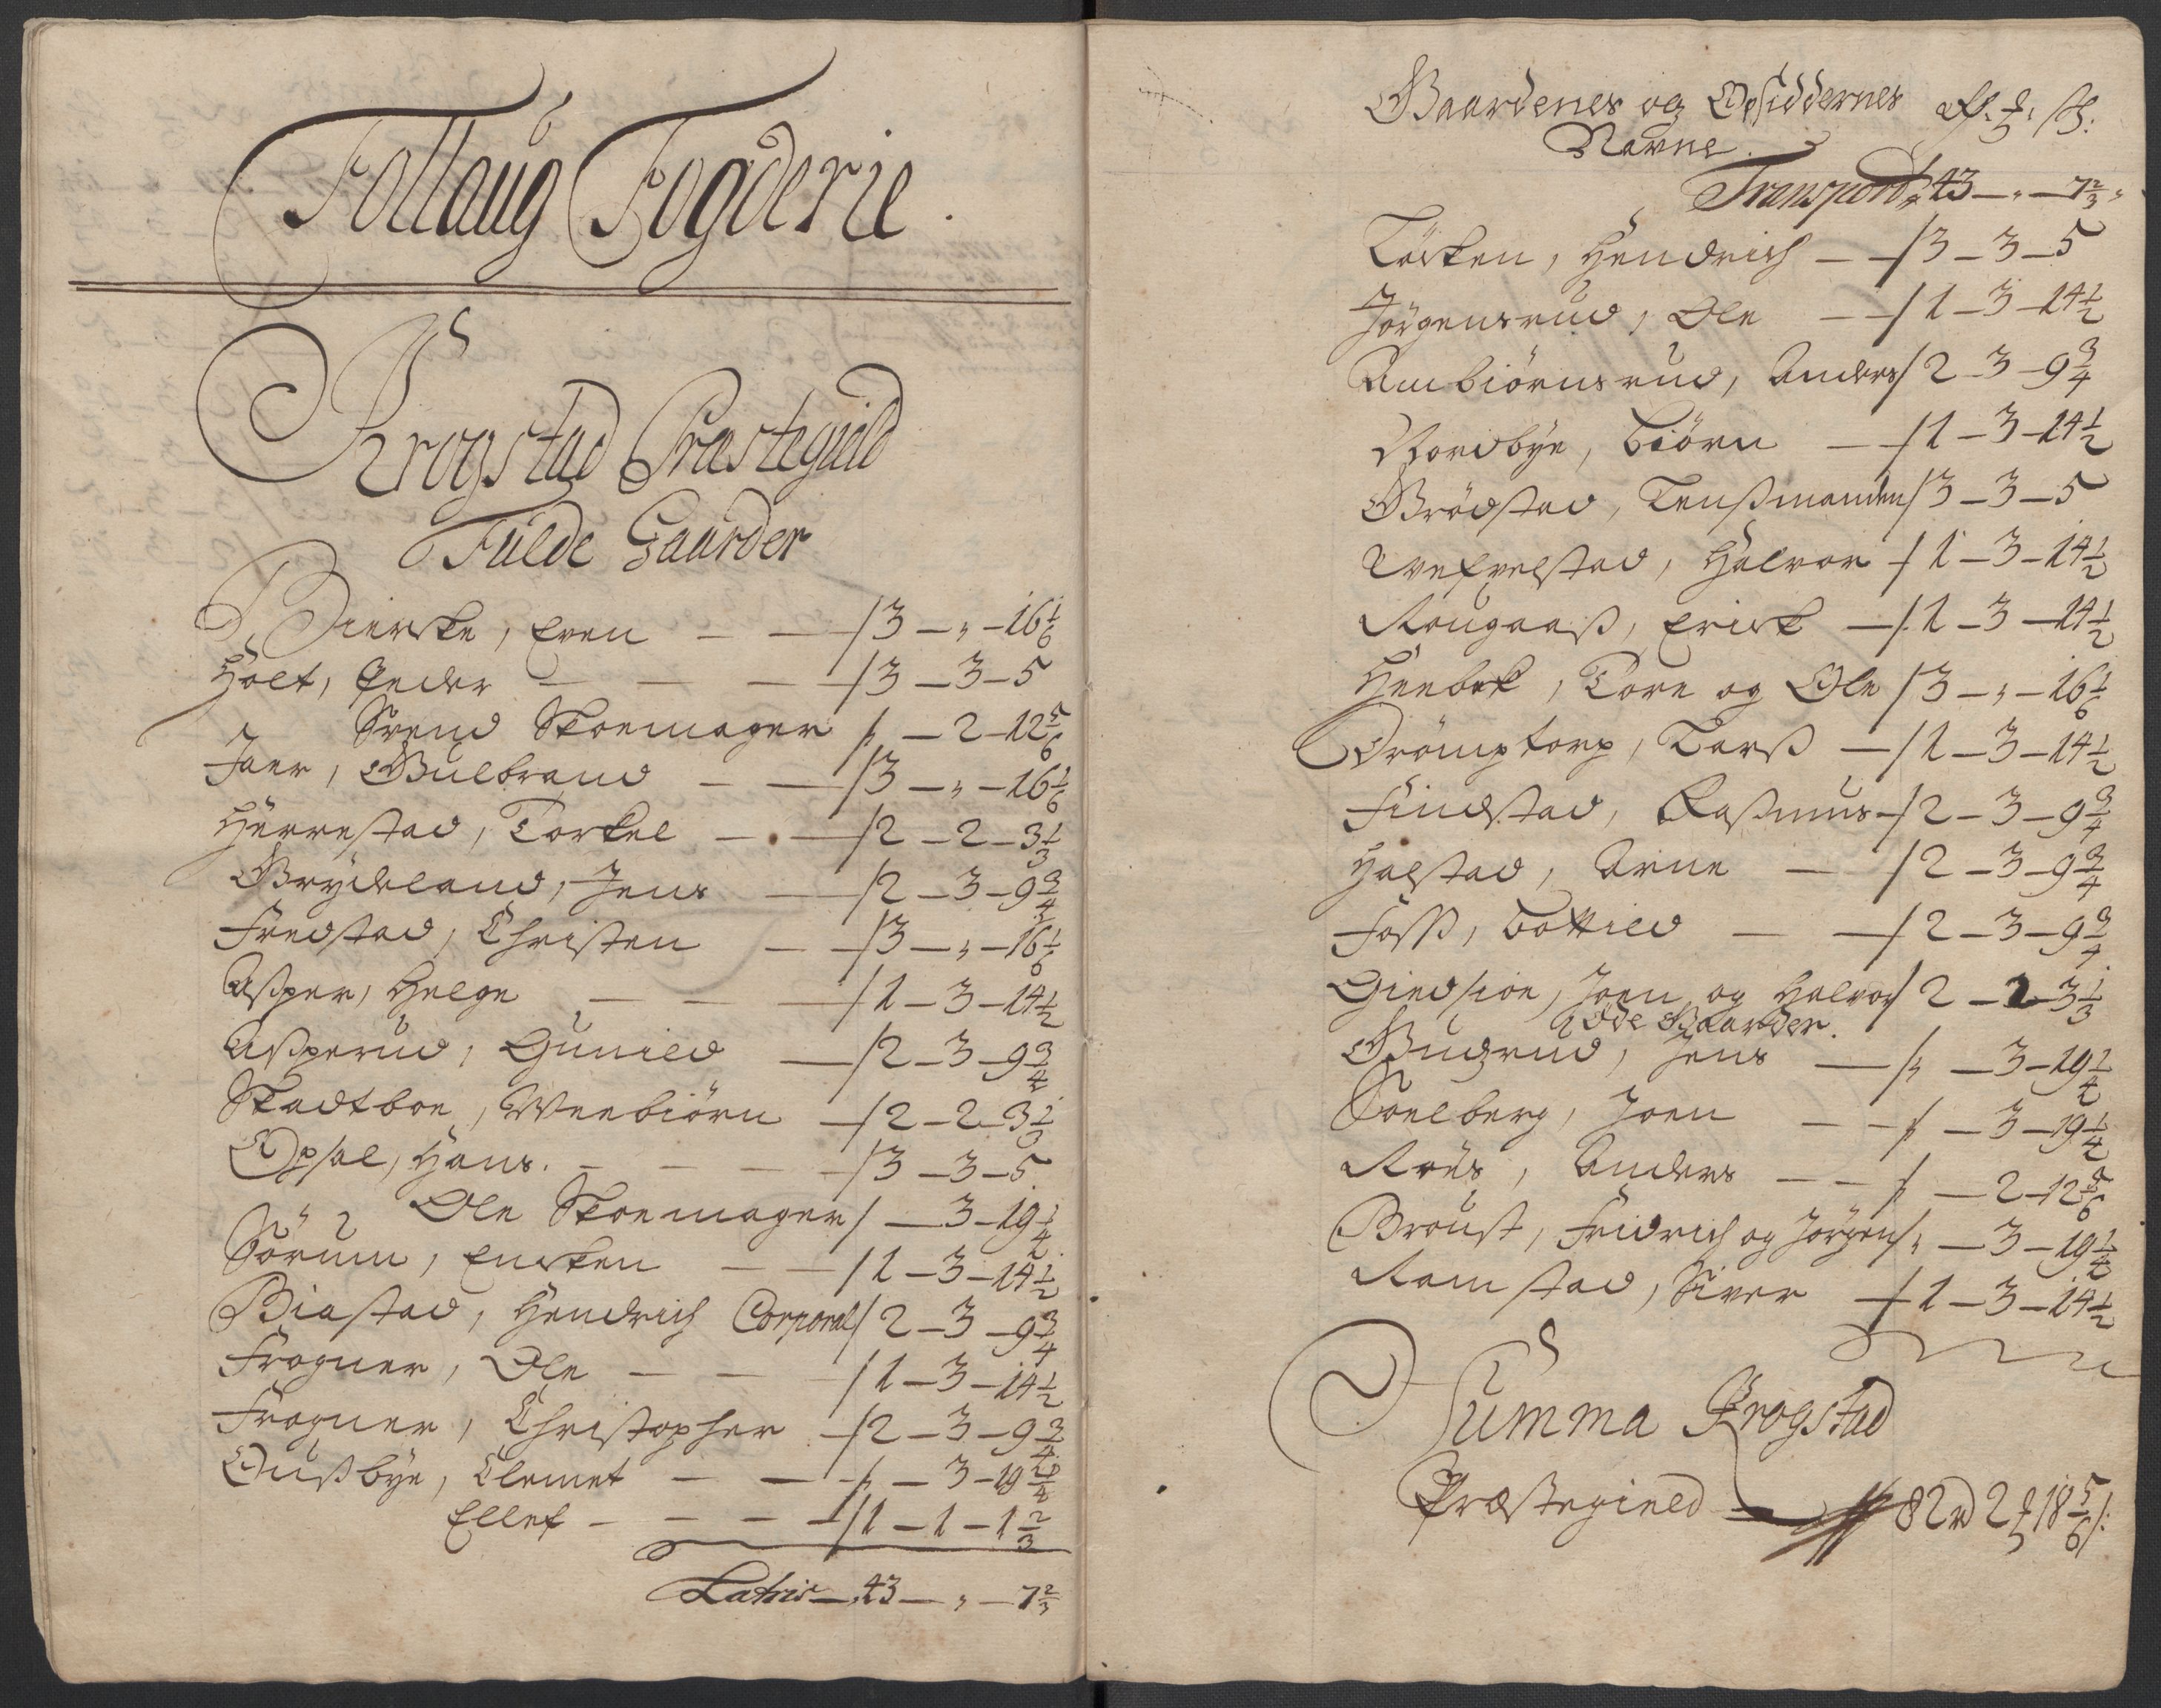 Follaug Fogderie.
Krogstad Præstegield
Fulde Gaarder
Bierke, Even — — 3 — „ — 16 1/6
Holt, Peder — — — 3 — 3 — 5
Svend Skoemager „ — 2 — 12 5/6
Jaer, Gulbrand — — 3 — „ — 16 1/6
Herrestad, Torkel — — 2 — 2 — 3 1/3
Grydeland, Jens — 2 — 3 — 9 3/4
Fredstad, Christen — — 3 — „ — 16 1/6
Asper, Helge — — — 1 — 3 — 14 1/2
Asperud, Gunild — 2 — 3 — 9 3/4
Skadtboe, Weebiörn — 2 — 2 — 3 1/3
Opsal, Hans. — — — 3 — 3 — 5
Ole Skoemager — 3 — 19 1/4
Sörum, Encken — — 1 — 3 — 14 1/2
Biastad, Hendrich Corporal 2 — 3 — 9 3/4
Frogner, Ole — — — 1 — 3 — 14 1/2
Frogner, Christopher — 2 — 3 — 9 3/4
Ousbye, Clemet — — „ — 3 — 19 1/4
Ellef — — — — 1 — 1 — 1 2/3
Latris — 43 — „ — 7 2/3
Gaardenes og Opsiddernes
Navne.
Transport 43 — „ — 7 2/3
Löcken, Hendrich — — 3 — 3 — 5
Jörgensrud, Ole — — 1 — 3 — 14 1/2
Ambiörnsrud, Anders 2 — 3 — 9 3/4
Nordbye, Biörn — — 1 — 3 — 14 1/2
Brödstad, Lensmanden 3 — 3 — 5
Halvor — 1 — 3 — 14 1/2
Rougaas, Erick — 1 — 3 — 14 1/2
Heebek, Tore og Ole 3 — „ — 16 1/6
Drömptorp, Lars — 1 — 3 — 14 1/2
Findstad, Rasmus — 2 — 3 — 9 3/4
Halstad, Arne — 2 — 3 — 9 3/4
Foss, Bottild — — 2 — 3 — 9 3/4
Giedsiöe, Joen og Halvor 2 — 2 — 3 1/3
Öde Gaarder.
Gudsrud, Jens — „ — 3 — 19 1/4
Soelberg, Joen — — „ — 3 — 19 1/4
Röis, Anders — — „ — 2 — 12 5/6
Broust, Fridrich og Jörgen „ — 3 — 19 1/4
Ramstad, Siver — 1 — 3 — 14 1/2
Summa Krogstad
Præstegield — 82 rd 2 18 5/6